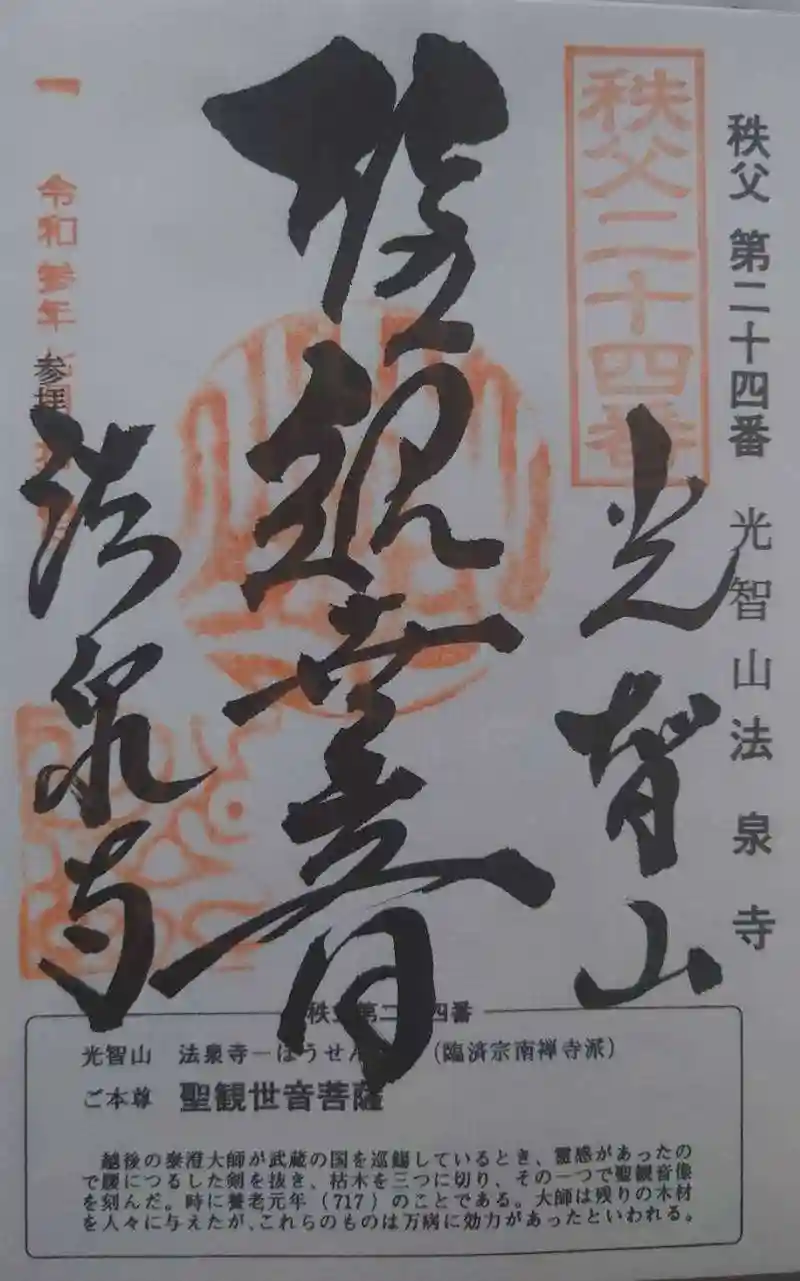 秩父 第二十四番 光智山法泉寺
秩父二十四番
光智山
聖観世音
令和参年
参拝
法泉寺
光智山 法泉寺
(臨済宗南禅寺派)
ご本尊 聖観世音菩薩
越後の泰澄大師が武蔵の国を巡錫しているとき、霊感があったの
で腰につるした剣を抜き、枯木を三つに切り、その一つで聖観音像
を刻んだ。時に養老元年(717)のことである。大師は残りの木材
を人々に与えたが、これらのものは万病に効力があったといわれる。